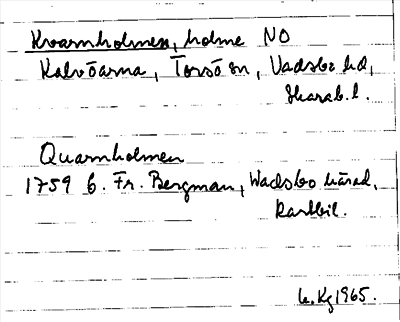 Kvarnholmen, holme NO
Kalvöarna, Torsö sn, Vadsbo hd,
Skarab. l.
Quarnholmen
1759 b. Fr. Bergman, Wadsbo härad,
kartbil.
L. Kg 1965.